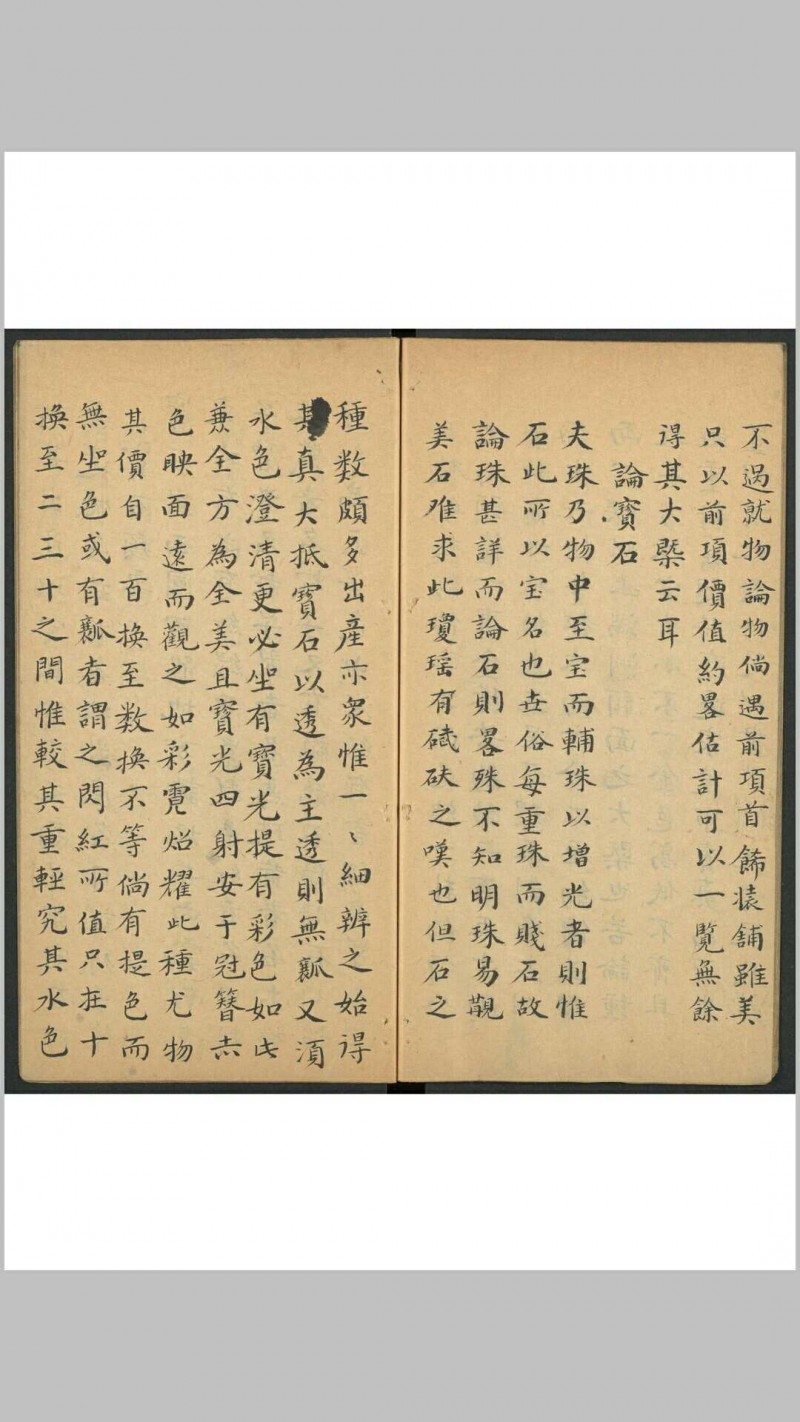 不過就物論物倘遇前項首飾裝舖雖美
只以前項價值約畧估計可以一覽無餘
得其大槩云耳
論寶石
夫珠乃物中至宝而輔珠以增光者則惟
石此所以宝名也世俗每重珠而賤石故
論珠甚詳而論石則畧殊不知明珠易覯
美石难求此瓊瑶有碔砆之嘆也但石之
種数頗多出産亦衆惟一〻細辨之始得
其真大抵寳石以透為主透則無瓤又須
水色澄清更必坐有寶光提有彩色如此
兼全方為全美且寳光四射安于冠簪去
色映面遠而觀之如彩霓炤耀此種尤物
其價自一百換至数換不等倘有提色而
無坐色或有瓤者謂之閃紅所值只在十
換至二三十之間惟較其重輕究其水色